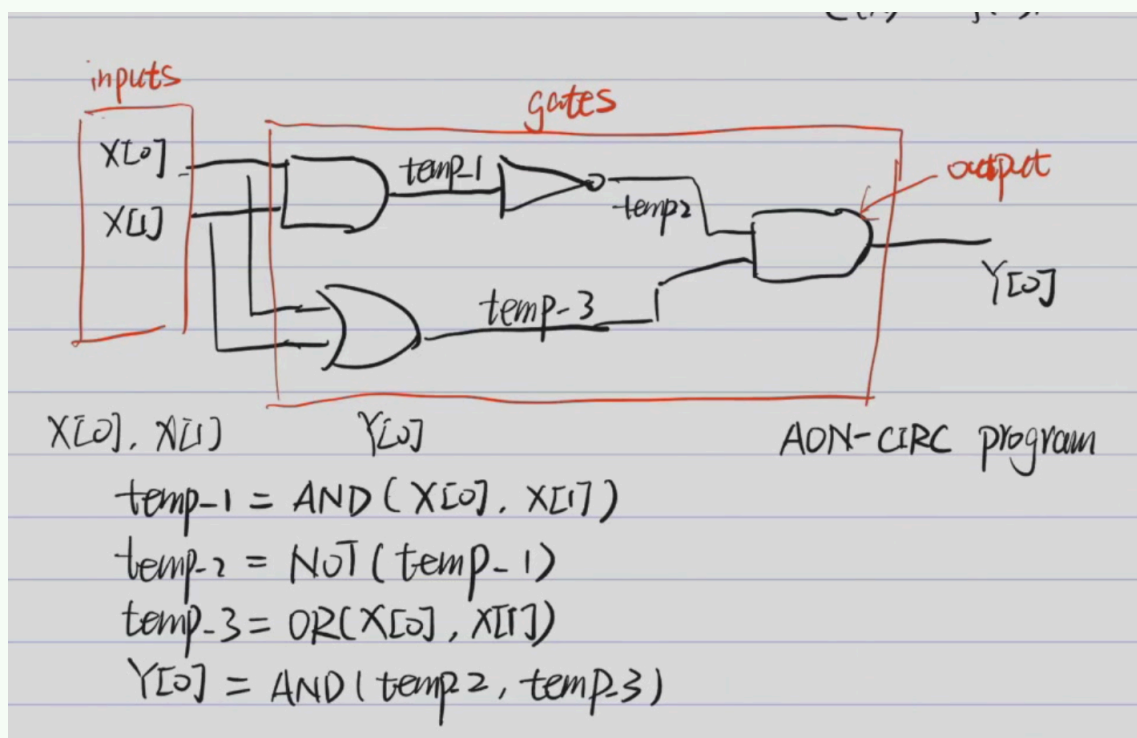 inputs
gates
X[0]
temp-1
output
X[1]
temp2
temp-3
Y[0]
X[0], X[1] Y[0] AON-CIRC program
temp-1 = AND(X[0], X[1])
temp-2 = NOT(temp-1)
temp-3 = OR(X[0], X[1])
Y[0] = AND(temp2, temp-3)